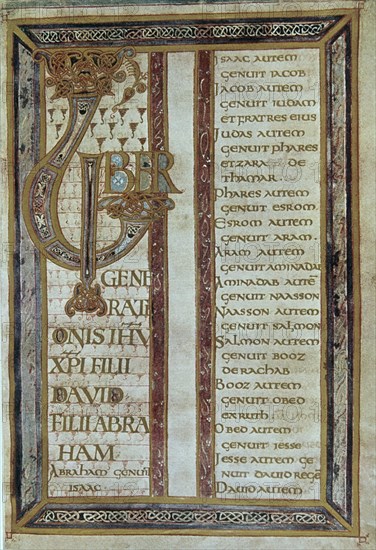 LIBER
GENE
RATI
ONIS IHU
XPI FILII
DAVID
FILII ABRA
HAM
Abraham genuit
isaac
isaac autem
genuit iacob
iacob autem
genuit iudam
et fratres eius
Iudas autem
genuit phares
et zara de
thamar
Phares autem
genuit esrom
Esrom autem
genuit aram
Aram autem
genuit aminadab
Aminadab autē
genuit naasson
Naasson autem
genuit salmon
Salmon autem
genuit booz
de rachab
Booz autem
genuit obed
ex ruth
Obed autem
genuit iesse
Iesse autem ge
nuit david regē
David autem